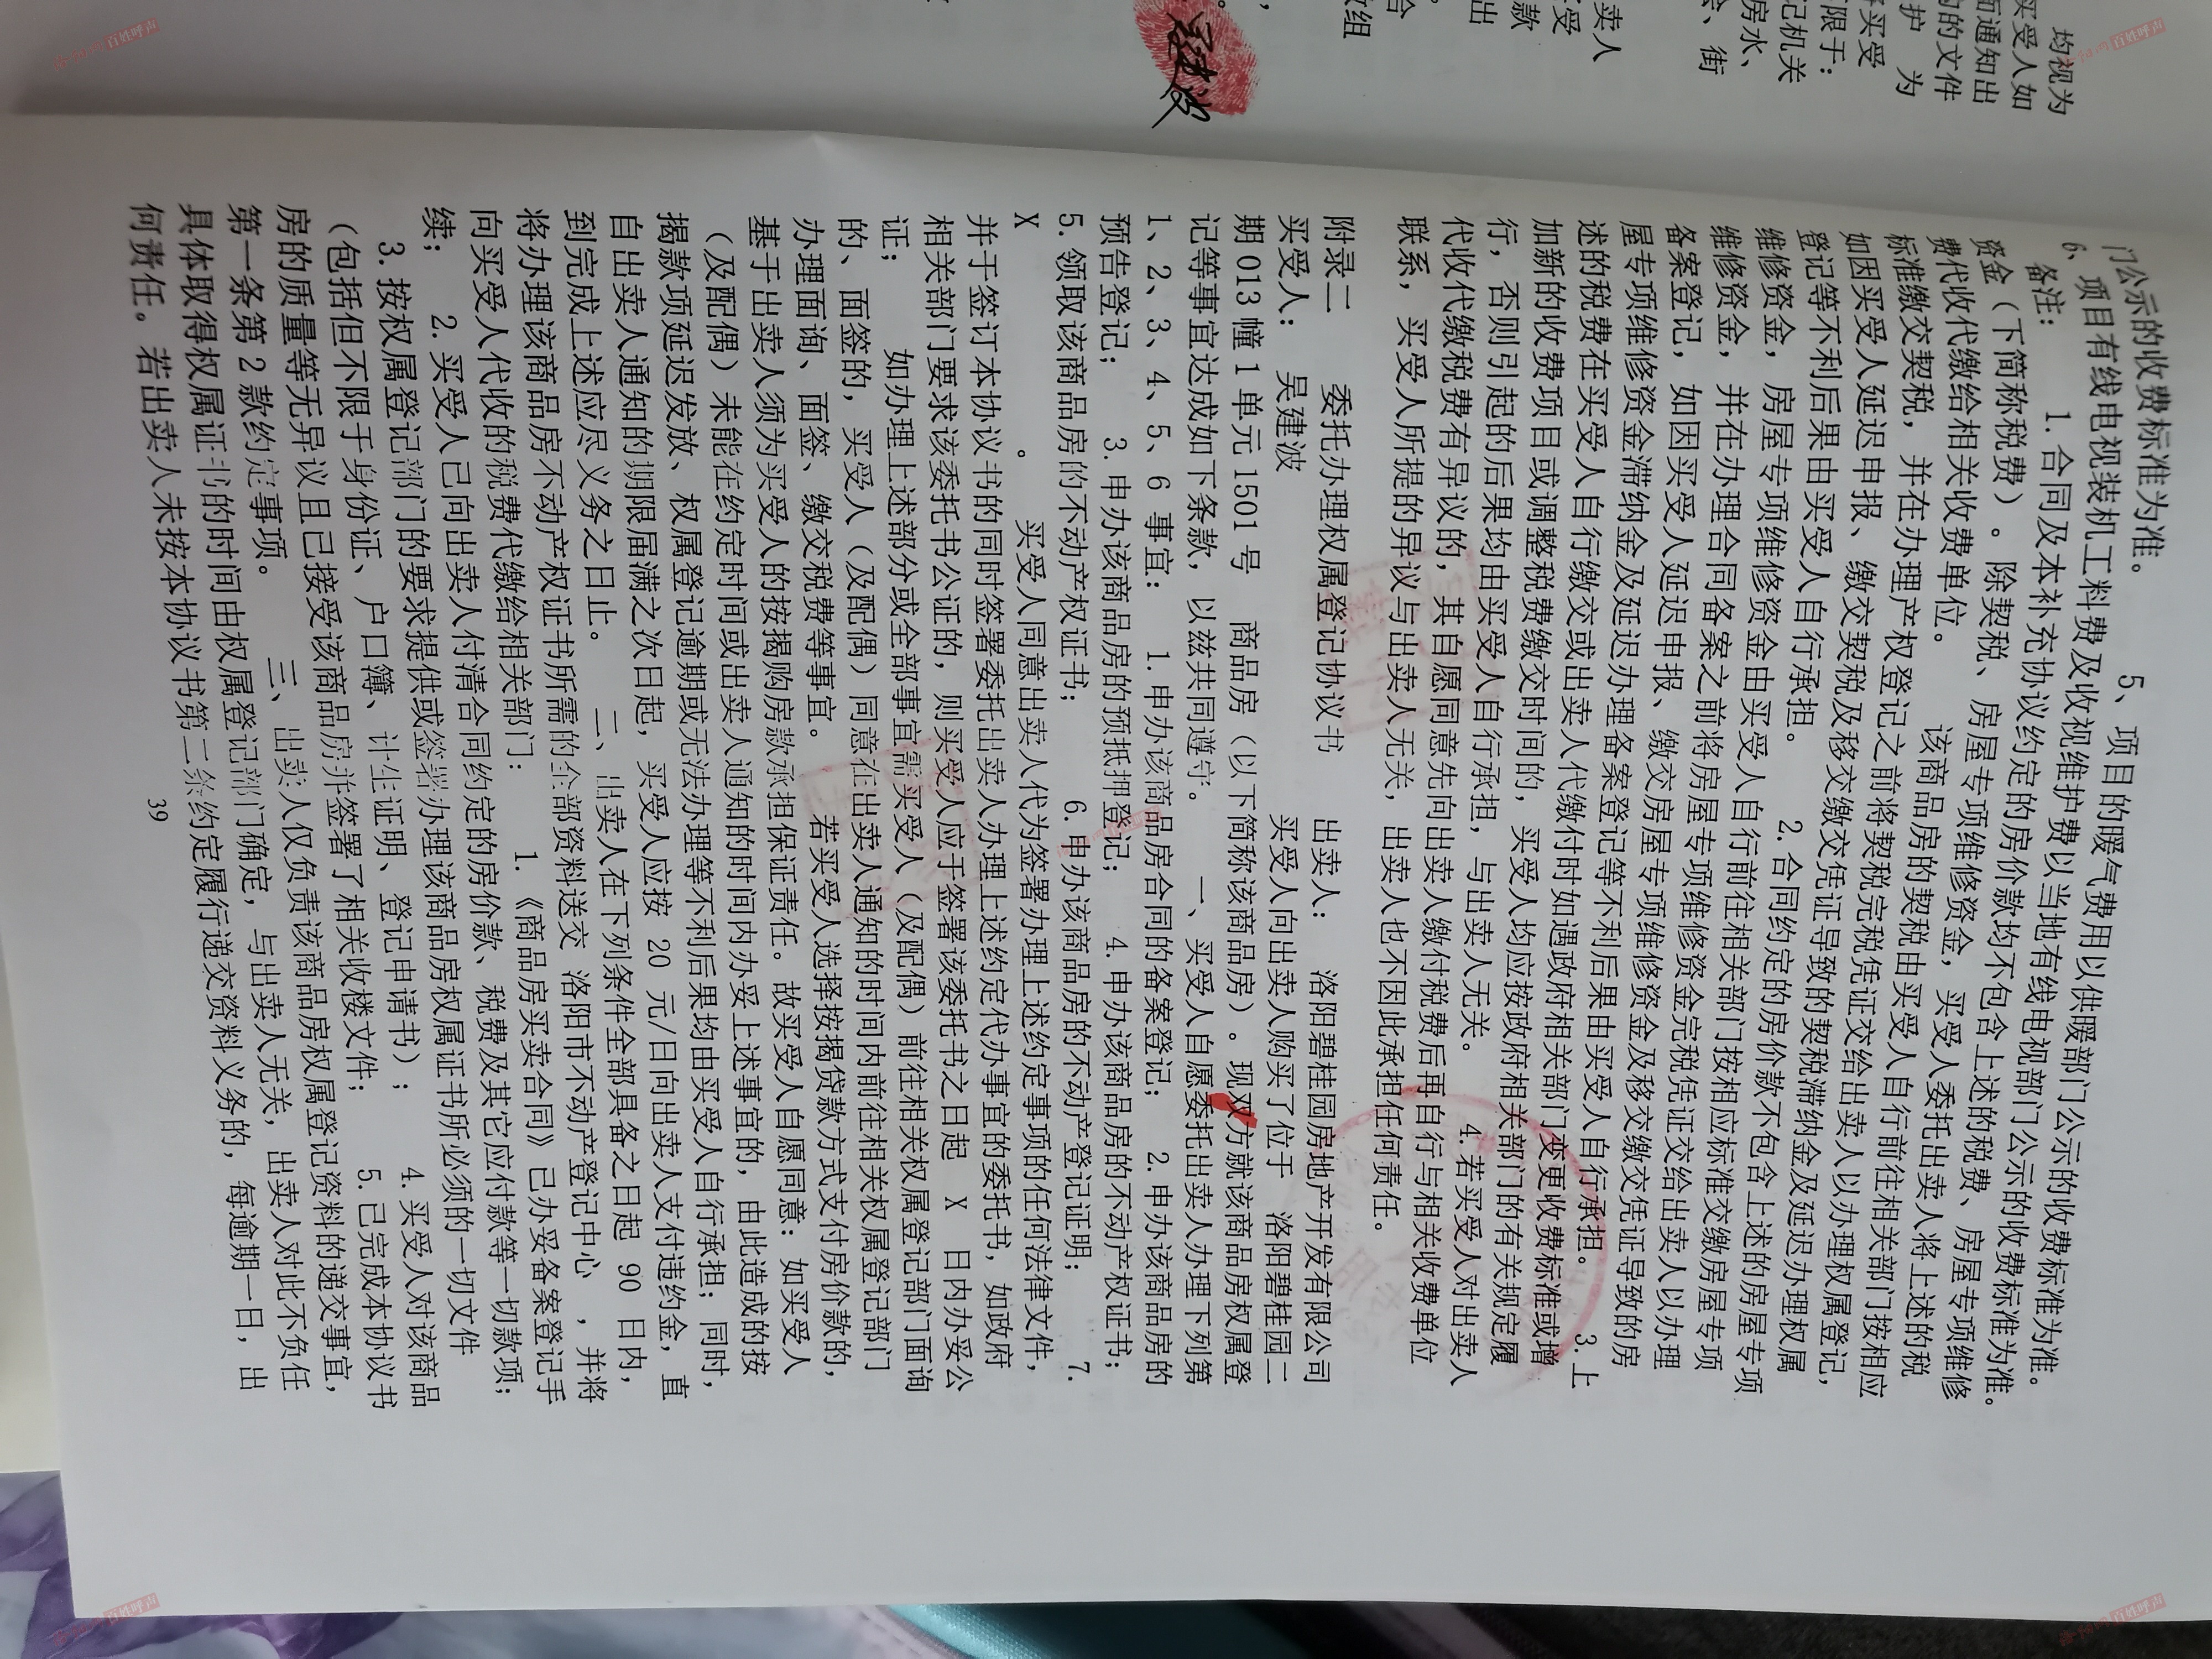 均视为
买受人如
面通知出
的文件
护 为
买受
限于：
记机关
房水、
街
卖人
受
款
出
合
组
门公示的收费标准为准。 5、项目的暖气费用以供暖部门公示的收费标准为准。
6、项目有线电视装机工料费及收视维护费以当地有线电视部门公示的收费标准为准。
备注： 1.合同及本补充协议约定的房价款均不包含上述的税费、房屋专项维修
资金（下简称税费）。除契税、房屋专项维修资金，买受人委托出卖人将上述的税
费代收代缴给相关收费单位。 该商品房的契税由买受人自行前往相关部门按相应
标准缴交契税，并在办理产权登记之前将契税完税凭证交给出卖人以办理权属登记，
如因买受人延迟申报、缴交契税及移交缴交凭证导致的契税滞纳金及延迟办理权属
登记等不利后果由买受人自行承担。 2.合同约定的房价款不包含上述的房屋专项
维修资金，房屋专项维修资金由买受人自行前往相关部门按相应标准交缴房屋专项
维修资金，并在办理合同备案之前将房屋专项维修资金完税凭证交给出卖人以办理
备案登记，如因买受人延迟申报、缴交房屋专项维修资金及移交缴交凭证导致的房
屋专项维修资金滞纳金及延迟办理备案登记等不利后果由买受人自行承担。 3.上
述的税费在买受人自行缴交或出卖人代缴付时如遇政府相关部门变更收费标准或增
加新的收费项目或调整税费缴交时间的，买受人均应按政府相关部门的有关规定履
行，否则引起的后果均由买受人自行承担，与出卖人无关。 4.若买受人对出卖人
代收代缴税费有异议的，其自愿同意先向出卖人缴付税费后再自行与相关收费单位
联系，买受人所提的异议与出卖人无关，出卖人也不因此承担任何责任。
附录二 委托办理权属登记协议书 出卖人： 洛阳碧桂园房地产开发有限公司
买受人： 吴建波 买受人向出卖人购买了位于 洛阳碧桂园二
期 013 幢 1 单元 1501 号 商品房（以下简称该商品房）。现双方就该商品房权属登
记等事宜达成如下条款，以兹共同遵守。 一、买受人自愿委托出卖人办理下列第
1、2、3、4、5、6 事宜： 1.申办该商品房合同的备案登记； 2.申办该商品房的
预告登记； 3.申办该商品房的预抵押登记； 4.申办该商品房的不动产权证书；
5.领取该商品房的不动产权证书； 6.申办该商品房的不动产登记证明； 7.
X 。 买受人同意出卖人代为签署办理上述约定事项的任何法律文件，
并于签订本协议书的同时签署委托出卖人办理上述约定代办事宜的委托书，如政府
相关部门要求该委托书公证的，则买受人应于签署该委托书之日起 X 日内办妥公
证； 如办理上述部分或全部事宜需买受人（及配偶）前往相关权属登记部门面询
的、面签的，买受人（及配偶）同意在出卖人通知的时间内前往相关权属登记部门
办理面询、面签、缴交税费等事宜。 若买受人选择按揭贷款方式支付房价款的，
基于出卖人须为买受人的按揭购房款承担保证责任。故买受人自愿同意：如买受人
（及配偶）未能在约定时间或出卖人通知的时间内办妥上述事宜的，由此造成的按
揭款项延迟发放、权属登记逾期或无法办理等不利后果均由买受人自行承担；同时，
自出卖人通知的期限届满之次日起，买受人应按 20 元/日向出卖人支付违约金，直
到完成上述应尽义务之日止。 二、出卖人在下列条件全部具备之日起 90 日内，
将办理该商品房不动产权证书所需的全部资料送交 洛阳市不动产登记中心 ，并将
向买受人代收的税费代缴给相关部门： 1.《商品房买卖合同》已办妥备案登记手
续； 2.买受人已向出卖人付清合同约定的房价款、税费及其它应付款等一切款项；
3.按权属登记部门的要求提供或签署办理该商品房权属证书所必须的一切文件
（包括但不限于身份证、户口簿、计生证明、登记申请书）； 4.买受人对该商品
房的质量等无异议且已接受该商品房并签署了相关收楼文件； 5.已完成本协议书
第一条第 2 款约定事项。 三、出卖人仅负责该商品房权属登记资料的递交事宜，
具体取得权属证书的时间由权属登记部门确定，与出卖人无关，出卖人对此不负任
何责任。若出卖人未按本协议书第二条约定履行递交资料义务的，每逾期一日，出
39
百姓呼声
百姓呼声
百姓呼声
百姓呼声